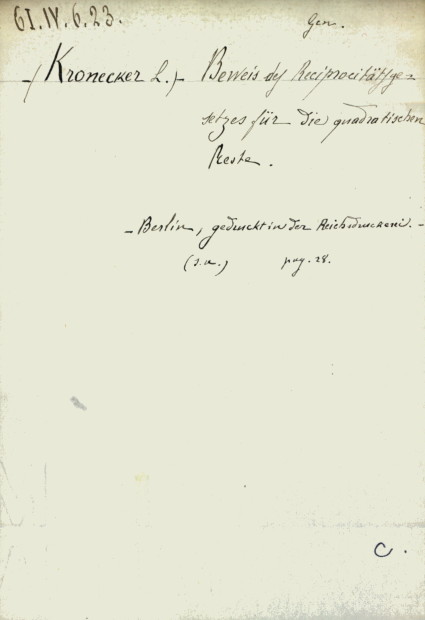 61.IV.6.23.
Gen.
-(Kronecker L.)- Beweis des Reciprocitätsge=
setzes für die quadratischen
Reste.
- Berlin, gedruckt in der Reichsdruckerei. -
(s.a.) pag. 28.
C.